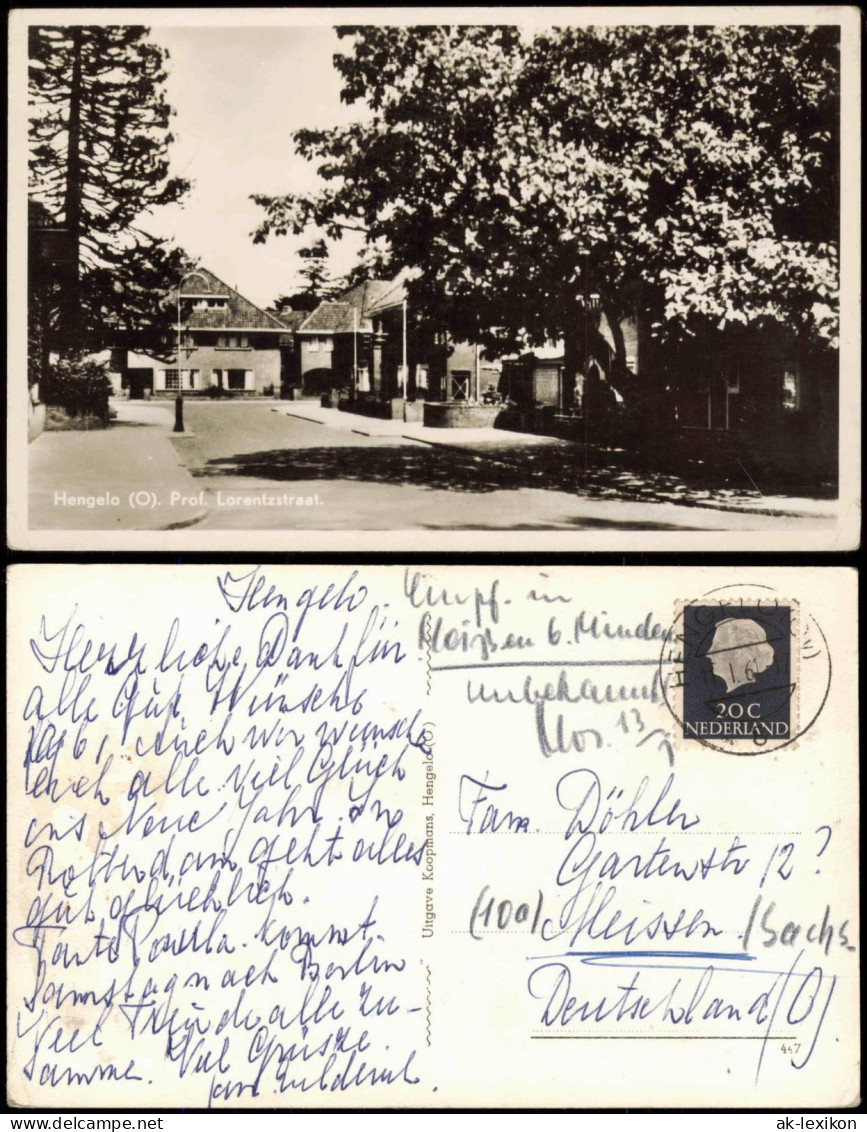 Hengelo (O). Prof. Lorentzstraat.
Hengelo.
Herzliche Dank für
alle gute Wünsche
1961, auch wir wünsche
euch alle viel Glück
ins Neue Jahr. In
Rotterdam geht alles
gut glücklich.
Tante kommt
Samstag nach Berlin
Viel Freude alle zu-
samme. Viel Grüsze.
Uitgave Koopmans, Hengelo (O)
Empf. in
Meißen b. Minden
unbekannt
13/1
HENGELO (OV)
1.61
20 C
NEDERLAND
Fam. Döhler
Gartenstr 12?
(10a) Meissen /Sachs
Deutschland (O).
447
ak-lexikon